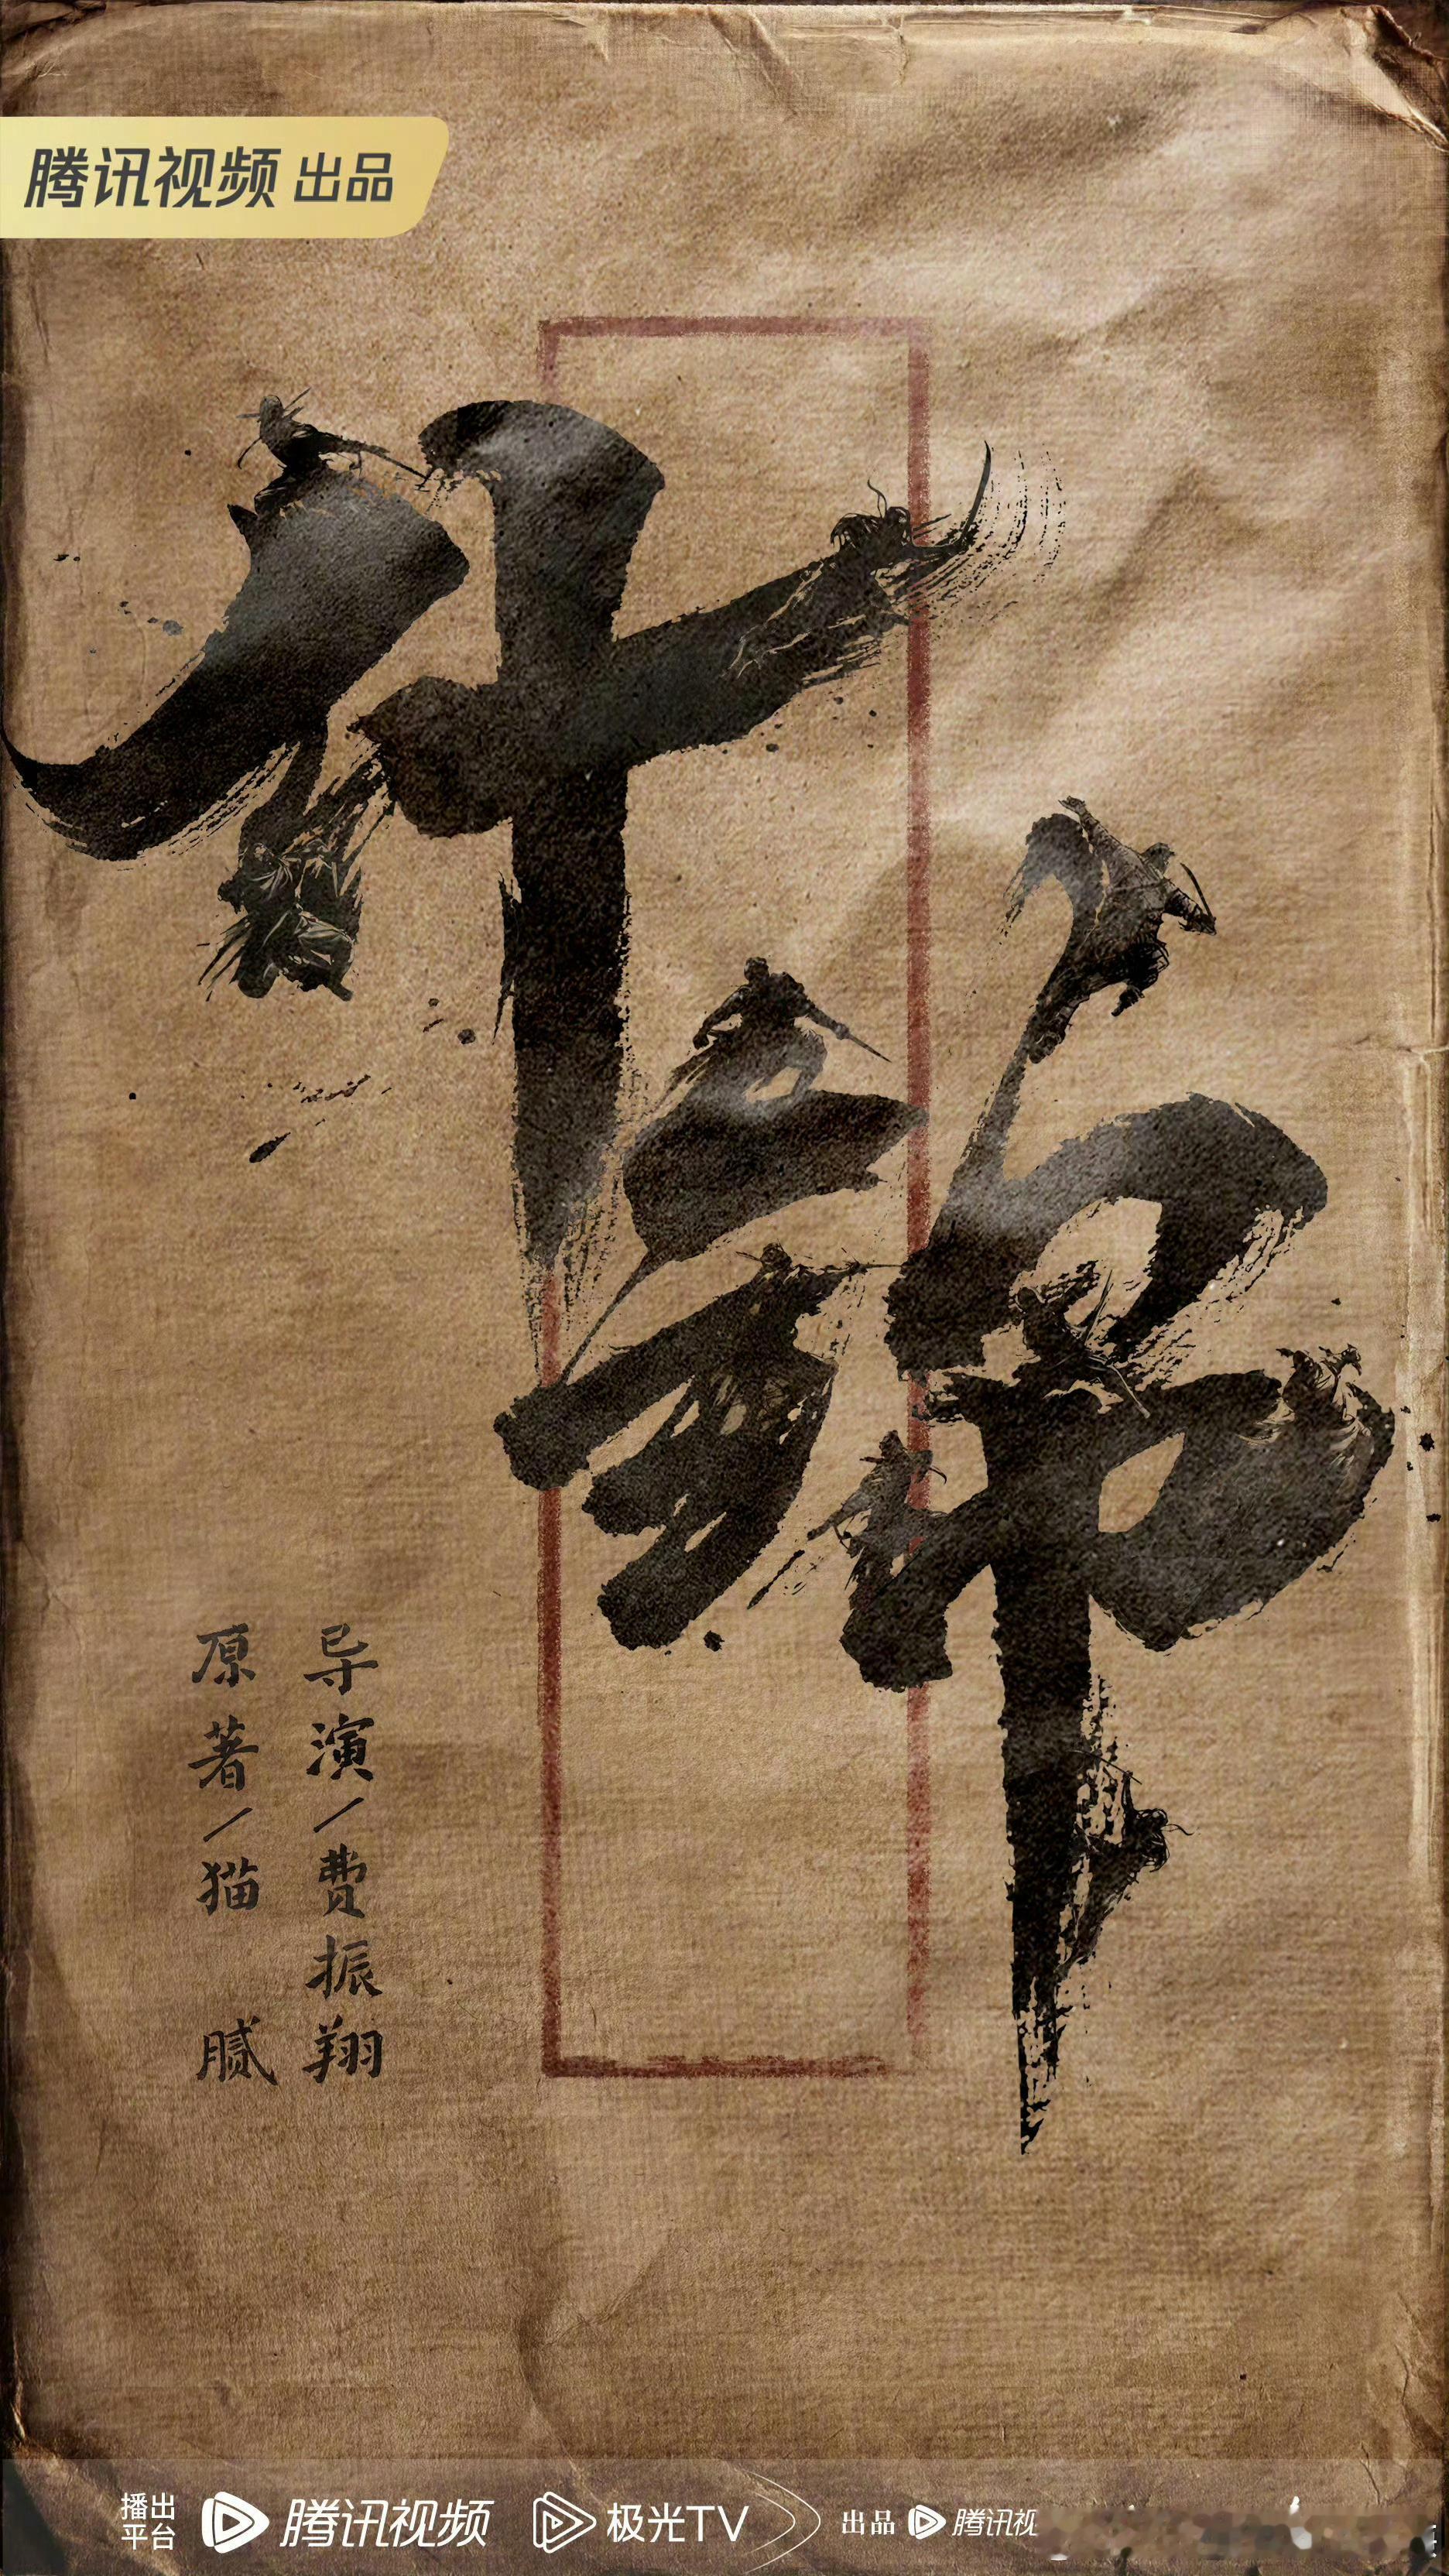 腾讯视频 出品
什锦
导演/费振翔
原著/猫腻
播出平台 腾讯视频 极光TV 出品 腾讯视